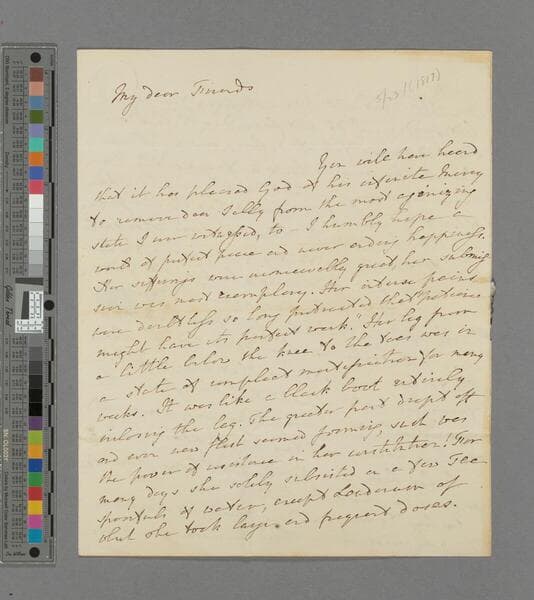 5/23/(1817)
My dear Friends
You will have heard
that it has pleased God of his infinite Mercy
to remove dear Sally from the most agonizing
state I ever witnessed, to I humbly hope a
world of perfect peace and never ending happiness.
Her sufferings were inconceivably great, her submis
sion was most exemplary. Her intense pains
were doubtless so long protracted that "patience
might have its perfect work." Her leg from
a little below the knee to the toes was in
a state of compleat mortification for many
weeks. It was like a black boot entirely
inclosing the leg. The greater part dropt off
and even new flesh seemed forming, such was
the power of resistance in her constitution! For
many days she solely subsisted on a few Tea
spoonfuls of water, except Laudanum of
which she took large and frequent doses.